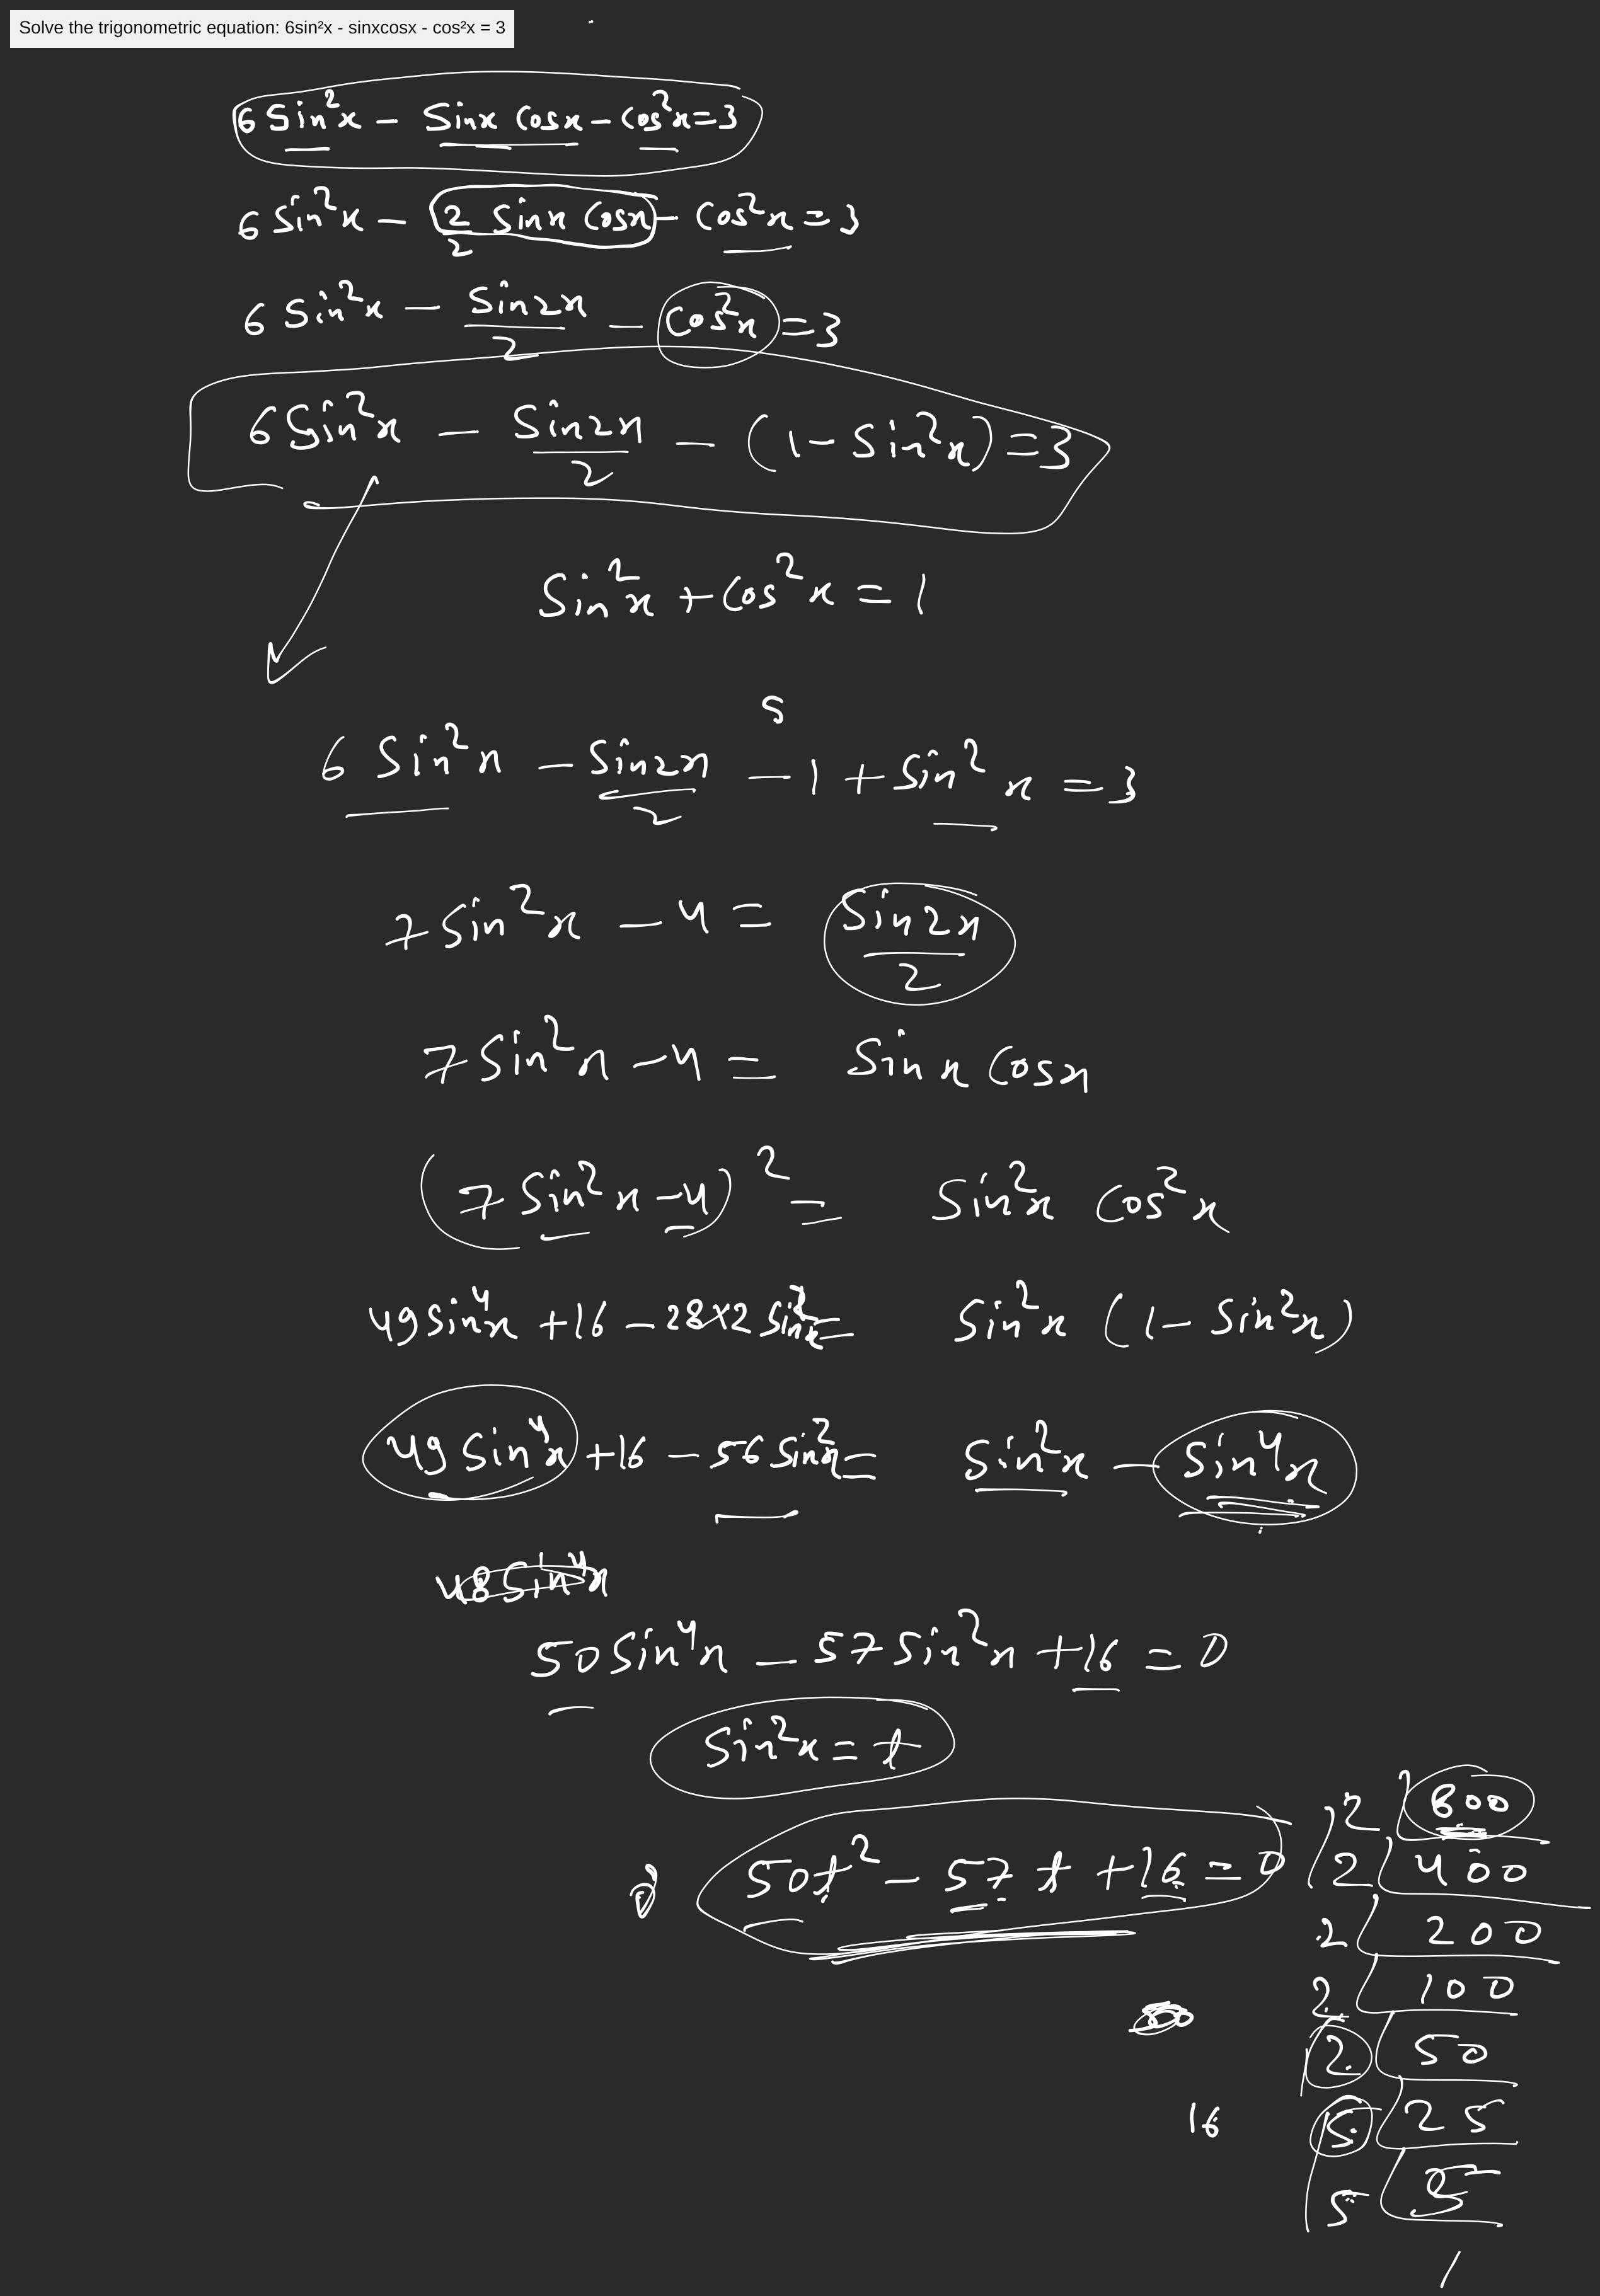 Solve the trigonometric equation: 6sin²x - sinxcosx - cos²x = 3
6 Sin²x - Sinx Cosx - Cos²x = 3
6 Sin²x - 2/2 Sinx Cosx - Cos²x = 3
6 Sin²x - Sin2x/2 - Cos²x = 3
6 Sin²x - Sin2x/2 - (1 - Sin²x) = 3
Sin²x + Cos²x = 1
S
6 Sin²x - Sin2x/2 - 1 + Sin²x = 3
7 Sin²x - 4 = Sin2x/2
7 Sin²x - 4 = Sinx Cosx
(7 Sin²x - 4)² = Sin²x Cos²x
49 Sin⁴x + 16 - 28×2 Sin²x = Sin²x (1 - Sin²x)
49 Sin⁴x + 16 - 56 Sin²x = Sin²x - Sin⁴x
48 Sin⁴x
50 Sin⁴x - 57 Sin²x + 16 = 0
Sin²x = t
50t² - 57t + 16 = 0
2 800
2 400
2 200
2 100
2 50
16
5 25
5 5
1